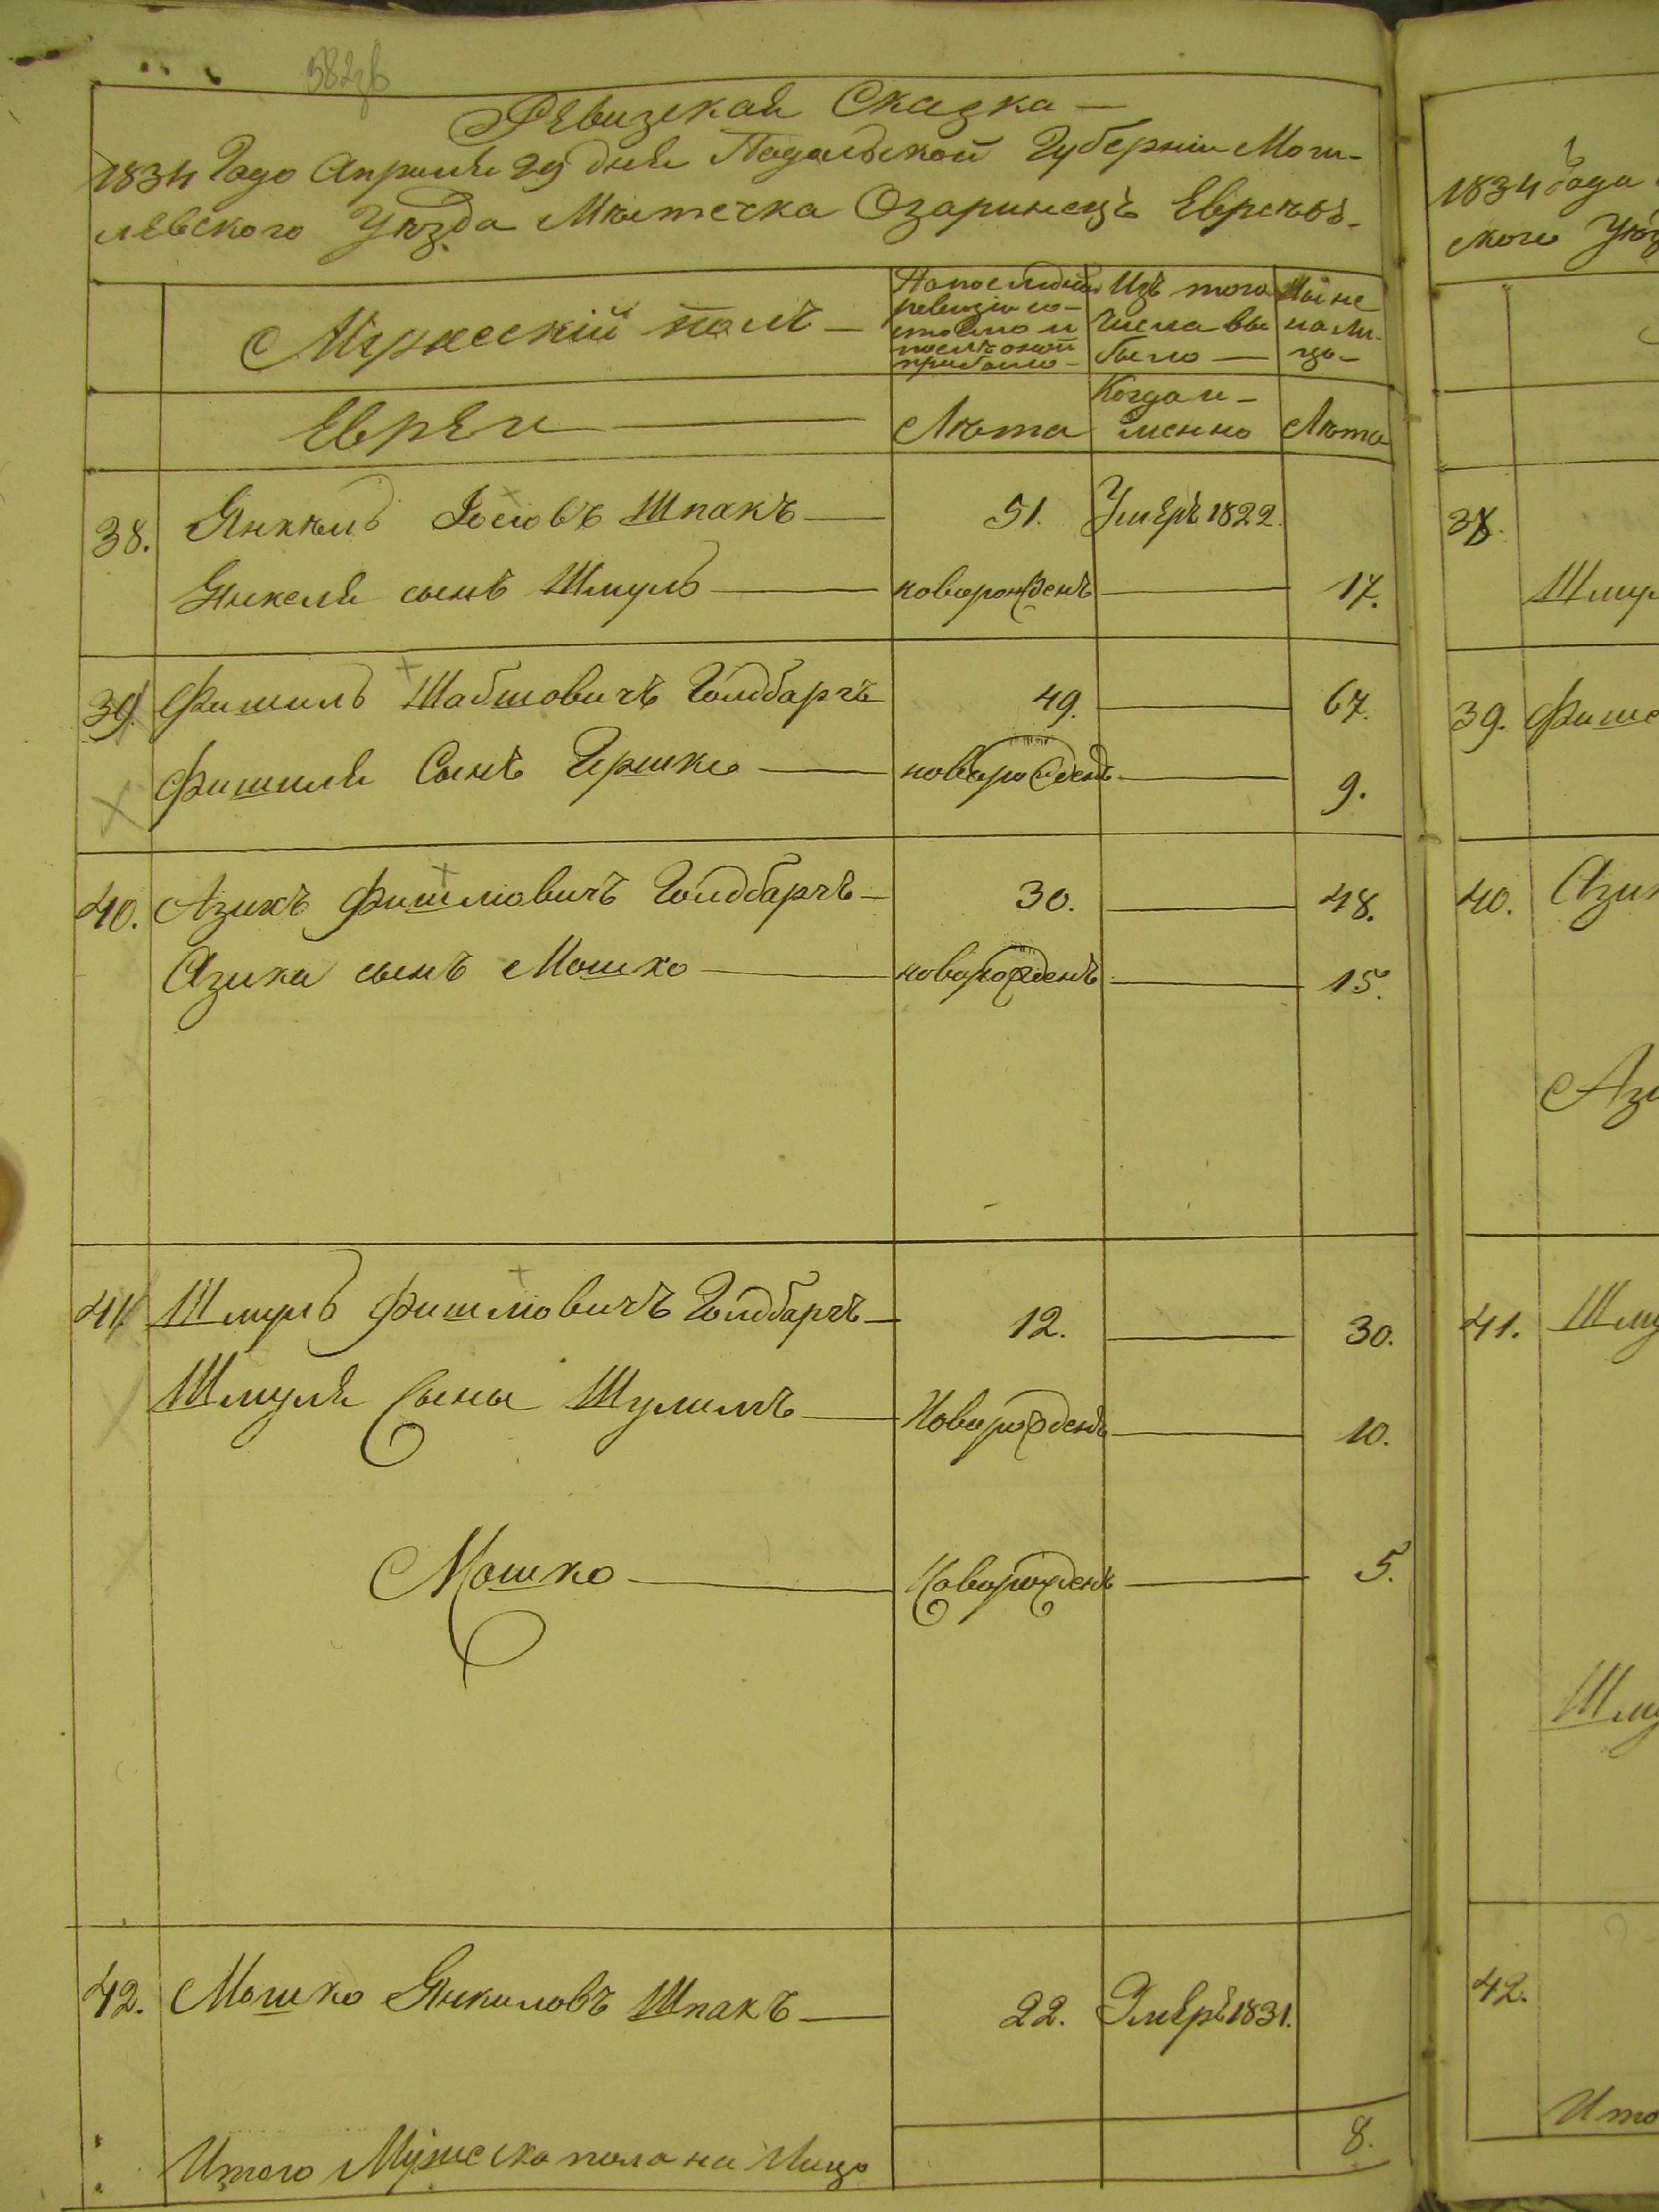 Ревизская Сказка —
1834 Года Апреля 29 дня Подольской Губернии Моги-
левского Уѣзда Мѣстечка Озаринецъ Евреевъ.
Мужескій полъ —
По последней ревизіи со- стояло и послѣ оной прибыло —
Изъ того числа вы было —
Ныне на ли- цо —
Евреи
Лѣта
Когда и- менно
Лѣта
38. Янкель Іосіовъ Шпакъ — 51. Умеръ 1822.
Янкеля сынъ Шмуль — новорожденъ — 17.
39. Фишиль Шабшовичъ Голдбаргъ 49. — 67.
Фишиля Сынъ Гершко — новорожденъ — 9.
40. Азикъ Фишліовичъ Голдбаргъ — 30. — 48.
Азика сынъ Мошко — новорожденъ — 15.
41. Шмуль Фишліовичъ Голдбаргъ — 12. — 30.
Шмуля Сыны Шулимъ — Новорожденъ — 10.
Мошко — Новорожденъ — 5.
42. Мошко Янкиловъ Шпакъ — 22. Умеръ 1831.
Итого Мужеска пола на Лицо 8.
1834 года
38.
Шмул
39. Фише
40. Ази
Ази
41. Шму
Шму
42.
Ито